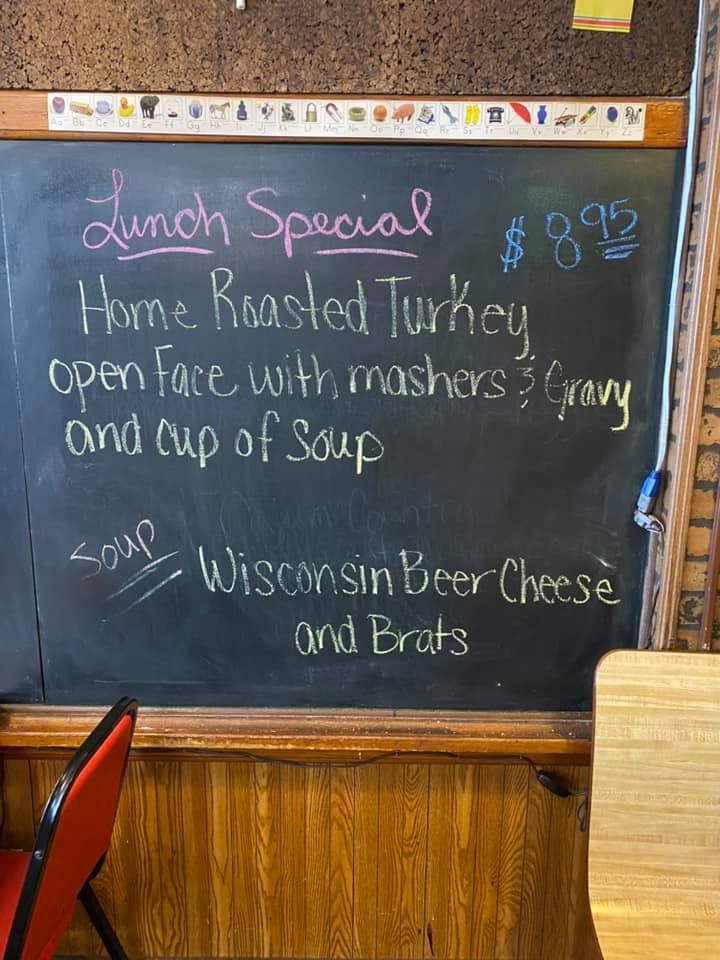 Aa Bb Cc Dd Ee Ff Gg Hh Ii Jj Kk Ll Mm Nn Oo Pp Qq Rr Ss Tt Uu Vv Ww Xx Yy Zz
Lunch Special $8.95
Home Roasted Turkey
open Face with mashers & Gravy
and cup of Soup
Soup Wisconsin Beer Cheese
and Brats